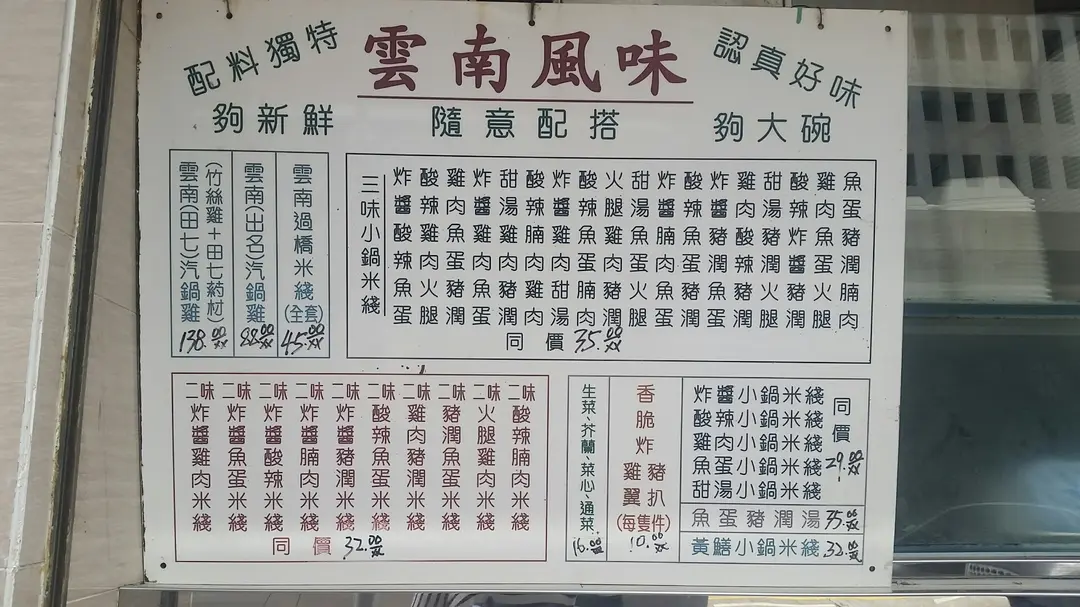 配料獨特
雲南風味
認真好味
夠新鮮
隨意配搭
夠大碗
雲南過橋米綫(全套) 45.00
雲南(出名)汽鍋雞 88.00
(竹絲雞+田七葯材)
雲南(田七)汽鍋雞 138.00
三味小鍋米綫
炸醬酸辣魚蛋
酸辣雞肉火腿
雞肉魚蛋豬潤
炸醬魚蛋豬潤
甜湯雞肉豬潤
酸辣腩肉雞肉
炸醬雞肉甜湯
酸辣魚蛋腩肉
火腿雞肉豬潤
甜湯魚蛋火腿
炸醬腩肉魚蛋
酸辣魚蛋豬潤
炸醬豬潤魚蛋
雞肉酸辣魚蛋
甜湯豬潤火腿
酸辣炸醬豬潤
雞肉魚蛋火腿
魚蛋豬潤腩肉
同價35.00
二味炸醬雞肉米綫
二味炸醬魚蛋米綫
二味炸醬酸辣米綫
二味炸醬腩肉米綫
二味炸醬豬潤米綫
二味酸辣魚蛋米綫
二味雞肉魚蛋米綫
二味豬潤魚蛋米綫
二味火腿雞肉米綫
二味酸辣腩肉米綫
同價32.00
生菜、芥蘭、菜心、通菜 16.00
香脆炸雞翼
豬扒
(每隻件) 10.00
炸醬小鍋米綫
酸辣小鍋米綫
雞肉小鍋米綫
魚蛋小鍋米綫
甜湯小鍋米綫
同價29.00
魚蛋豬潤湯35.00
黃鱔小鍋米綫32.00